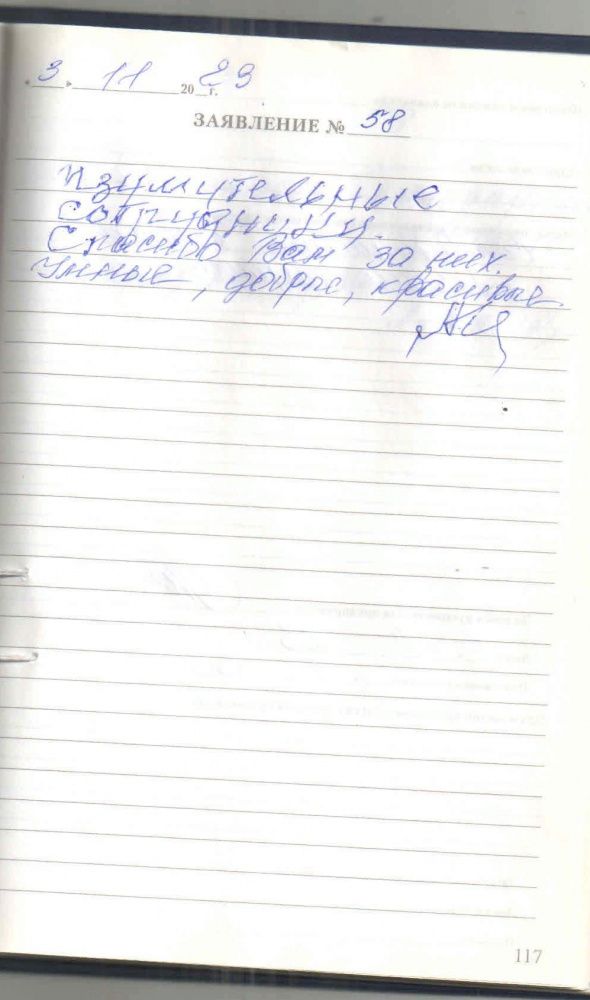 « 3 » 11 20 23 г.
ЗАЯВЛЕНИЕ № 58
изумительные
сотрудницы.
Спасибо Вам за них.
Умные, добрые, красивые.
117